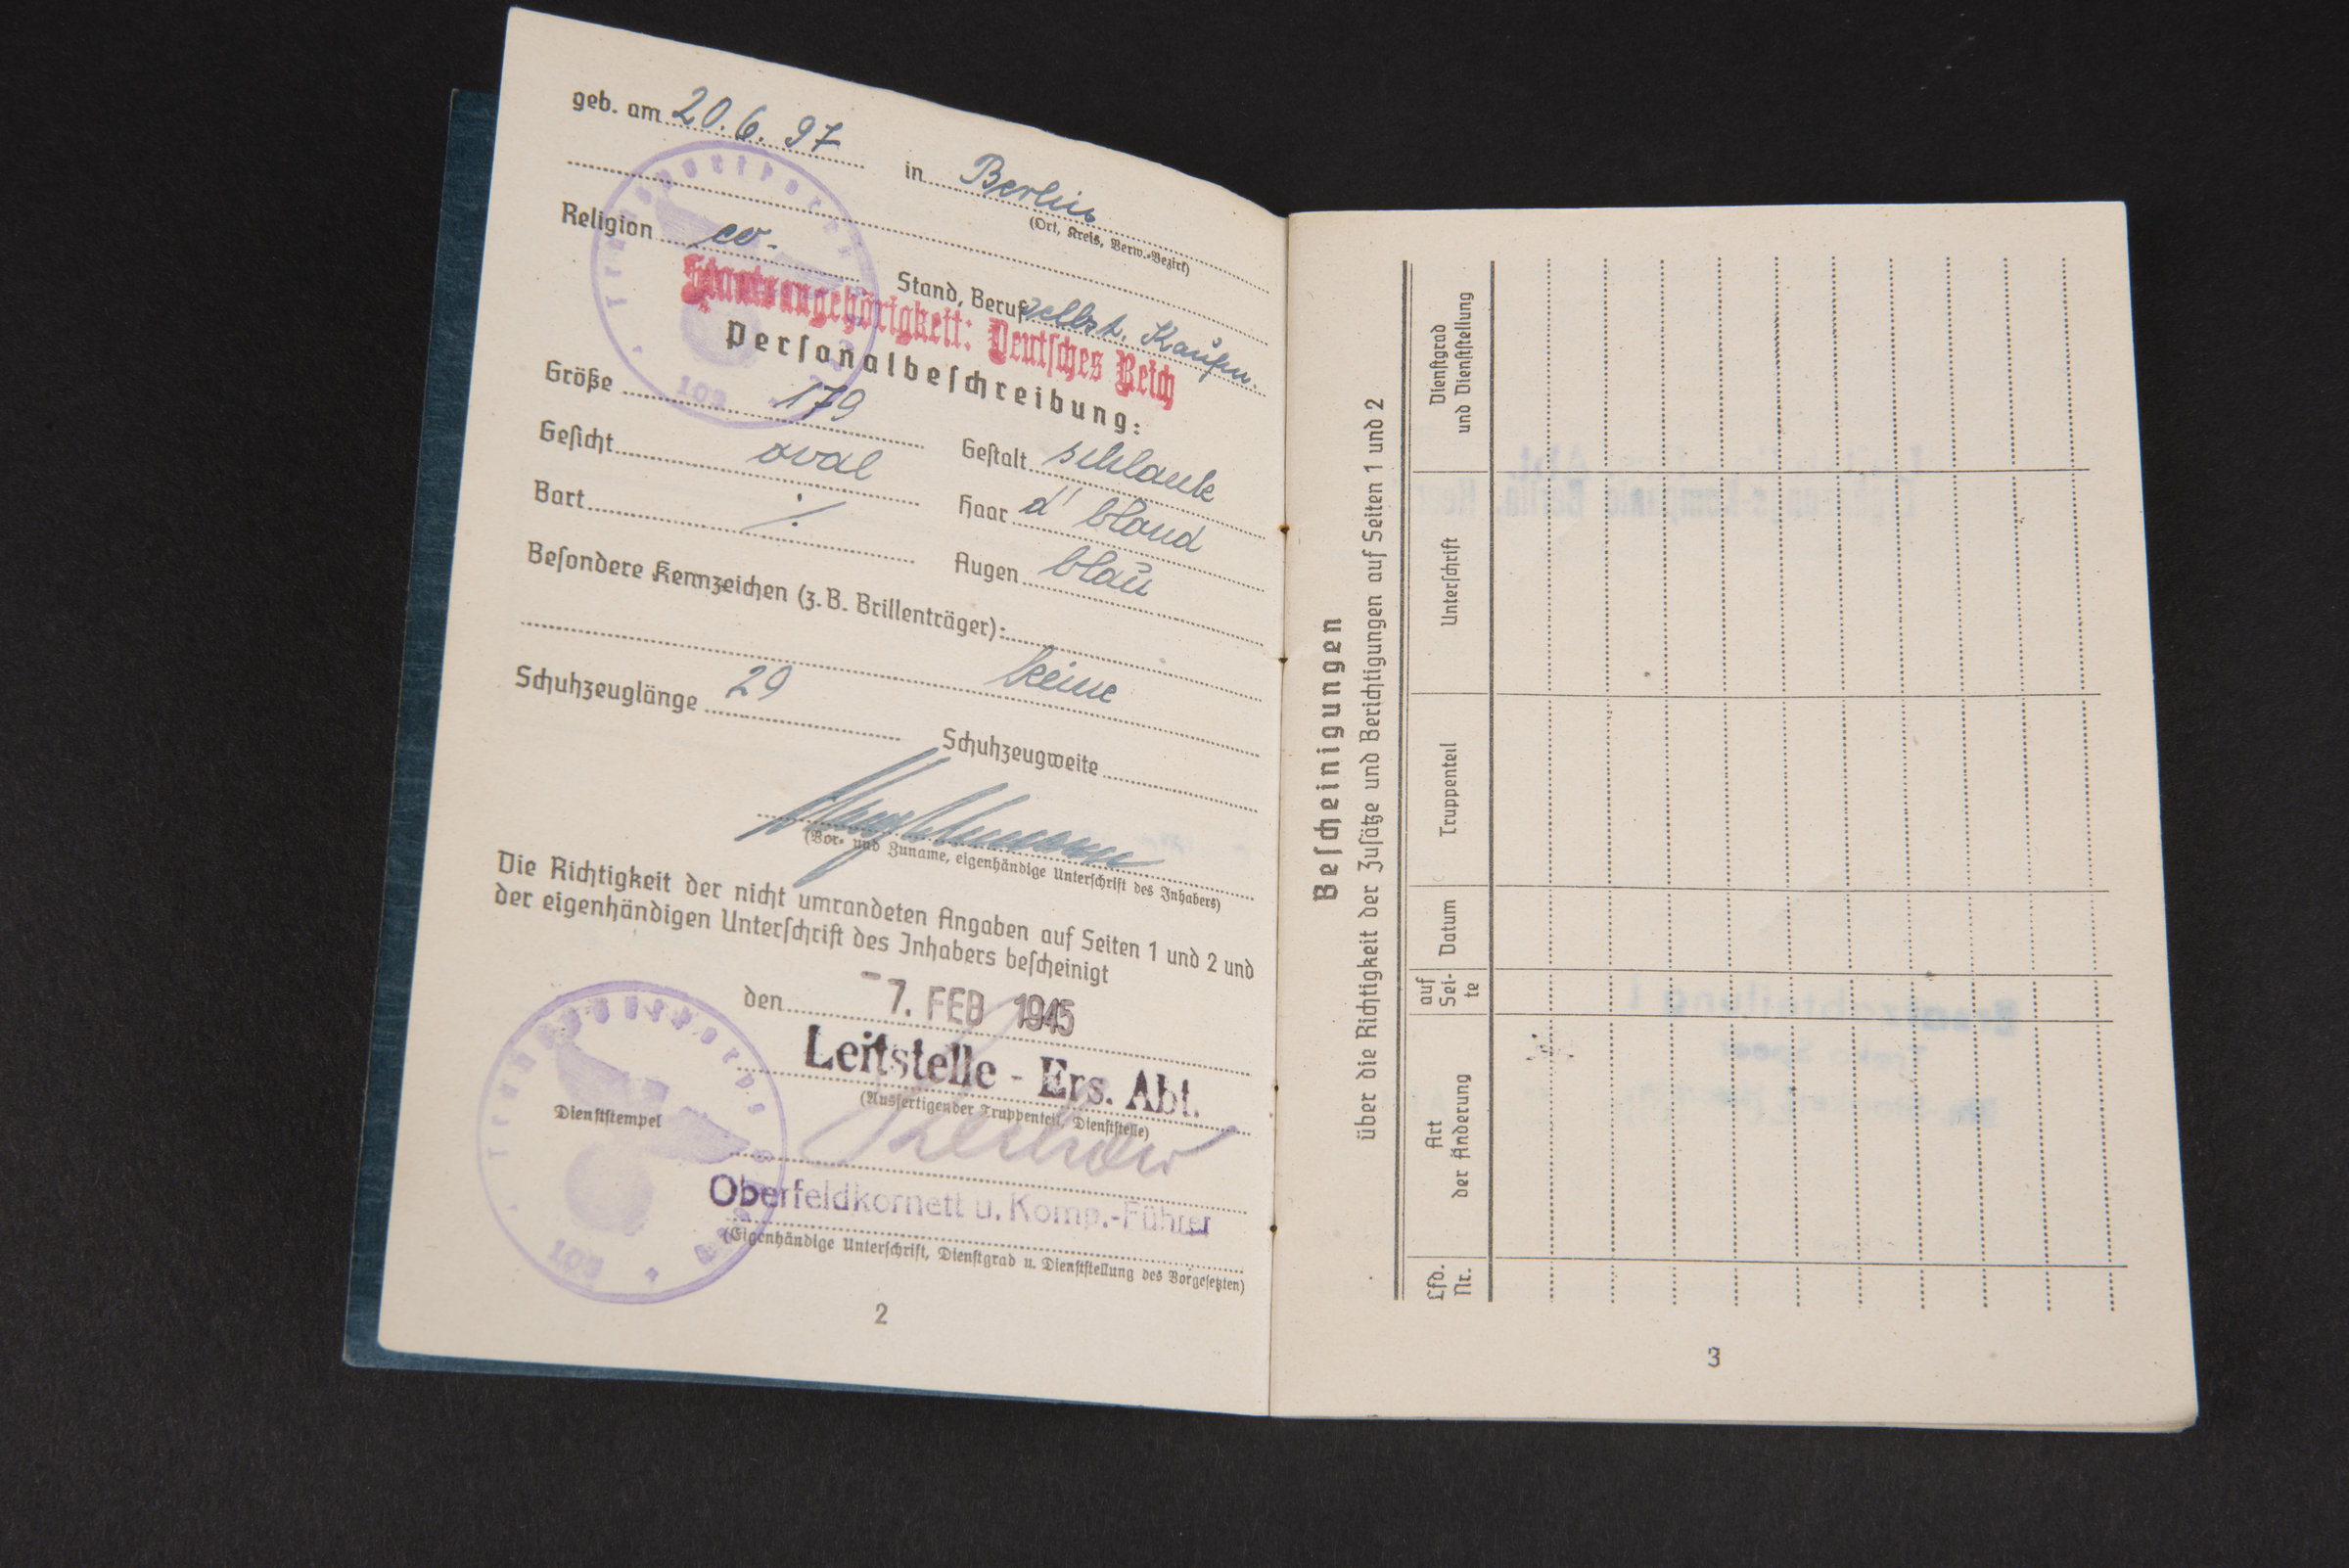 geb. am 20. 6. 97 in Berlin
(Ort, Kreis, Verw.-Bezirk)
Religion ev. Stand, Beruf selbst. Kaufm.
Staatsangehörigkeit: Deutsches Reich
Personalbeschreibung:
Größe 179 Gestalt schlank
Gesicht oval Haar d' blond
Bart ./. Augen blau
Besondere Kennzeichen (z. B. Brillenträger):
keine
Schuhzeuglänge 29 Schuhzeugweite
(Vor- und Zuname, eigenhändige Unterschrift des Inhabers)
Die Richtigkeit der nicht umrandeten Angaben auf Seiten 1 und 2 und
der eigenhändigen Unterschrift des Inhabers bescheinigt
den -7. FEB 1945
Leitstelle - Ers. Abt.
(Ausfertigender Truppenteil, Dienststelle)
Dienststempel
Oberfeldkornett u. Komp.-Führer
(Eigenhändige Unterschrift, Dienstgrad u. Dienststellung des Vorgesetzten)
2
Bescheinigungen
über die Richtigkeit der Zusätze und Berichtigungen auf Seiten 1 und 2
Lfd. Nr.
Art der Änderung
auf Sei- te
Datum
Truppenteil
Unterschrift
Dienstgrad und Dienststellung
3